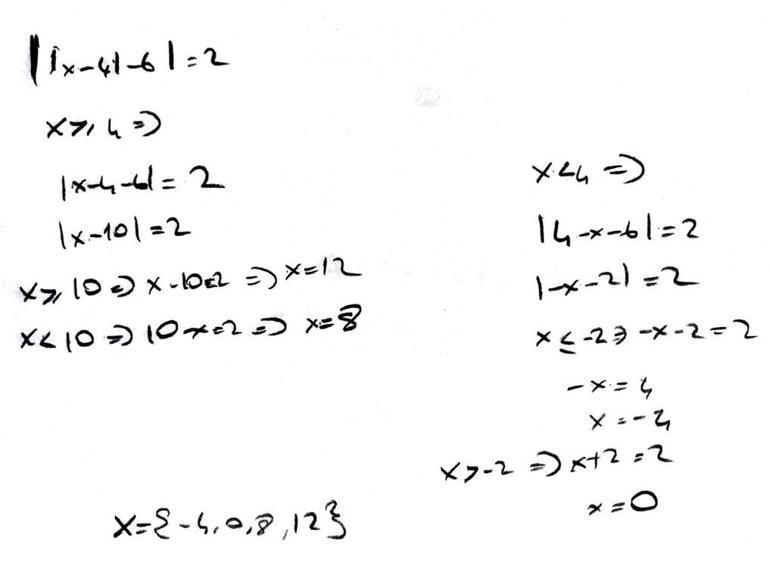 ||x-4|-6|=2
x≥4 ⇒
|x-4-6|=2
|x-10|=2
x≥10 ⇒ x-10=2 ⇒ x=12
x<10 ⇒ 10-x=2 ⇒ x=8
x<4 ⇒
|4-x-6|=2
|-x-2|=2
x≤-2 ⇒ -x-2=2
-x=4
x=-4
x>-2 ⇒ x+2=2
x=0
x={-4,0,8,12}